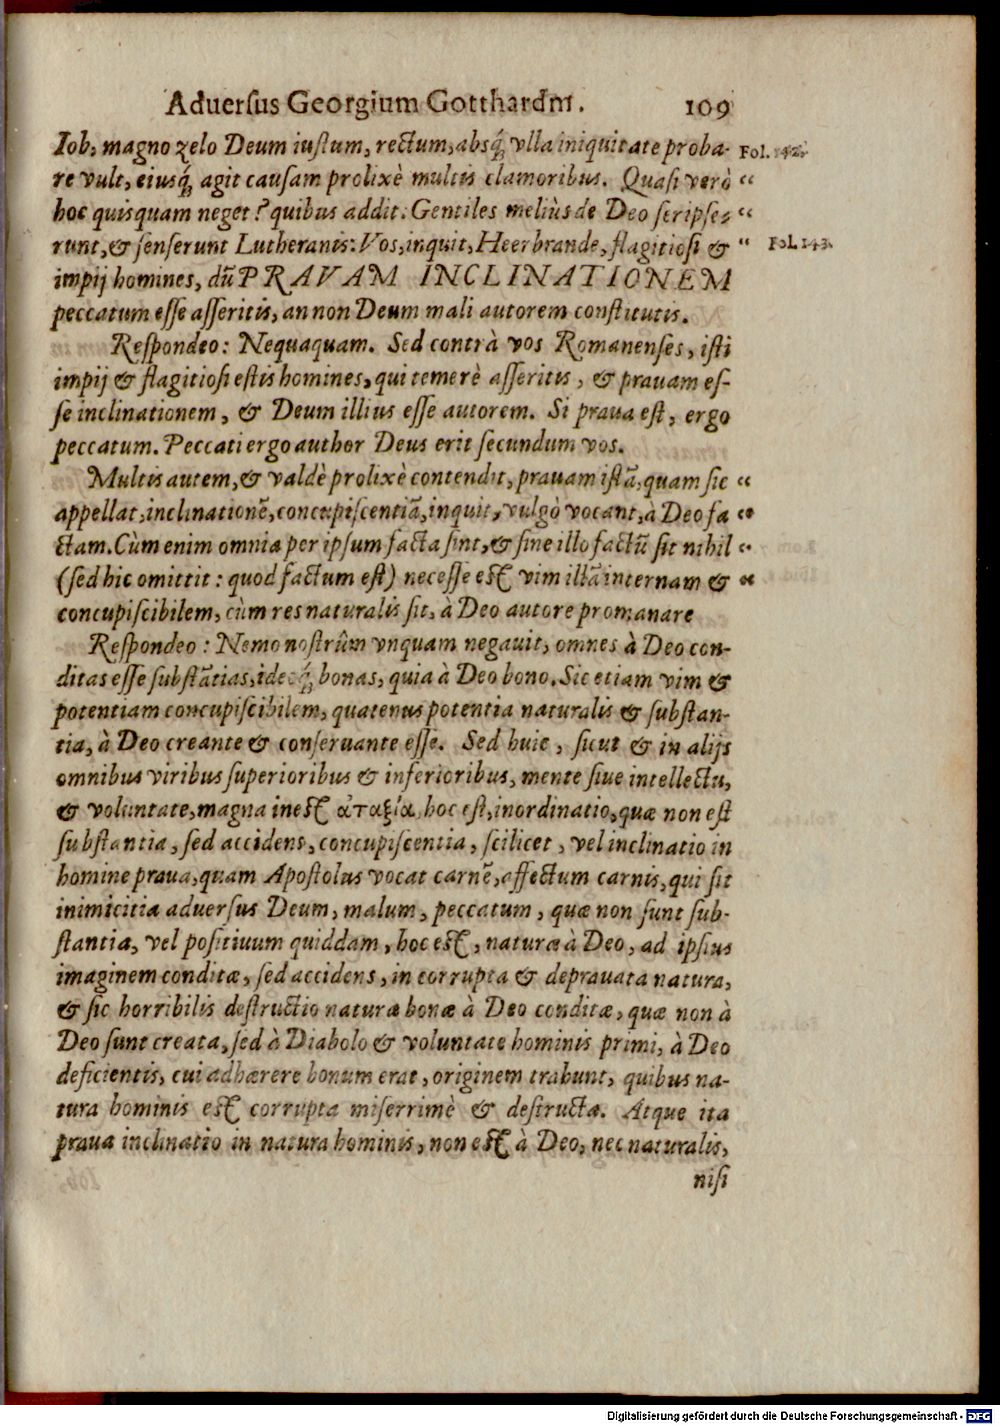 Aduersus Georgium Gotthardm. 109
Iob, magno zelo Deum iustum, rectum, absq́; vlla iniquitate proba- Fol. 142.
re vult, eiusq́; agit causam prolixè multis clamoribus. Quasi verò “
hoc quisquam neget? quibus addit: Gentiles meliùs de Deo scripse- “
runt, & senserunt Lutheranis: Vos, inquit, Heerbrande, flagitiosi & “ Fol. 143.
impij homines, dũ PRAVAM INCLINATIONEM
peccatum esse asseritis, an non Deum mali autorem constitutis.
Respondeo: Nequaquam. Sed contrà vos Romanenses, isti
impij & flagitiosi estis homines, qui temerè asseritis, & prauam es-
se inclinationem, & Deum illius esse autorem. Si praua est, ergo
peccatum. Peccati ergo author Deus erit secundum vos.
Multis autem, & valdè prolixè contendit, prauam istã, quam sic “
appellat, inclinationẽ, concupiscentiã, inquit, vulgò vocant, à Deo fa “
ctam. Cùm enim omnia per ipsum facta sint, & sine illo factũ sit nihil “
(sed hic omittit: quod factum est) necesse est vim illã internam & “
concupiscibilem, cùm res naturalis sit, à Deo autore promanare
Respondeo: Nemo nostrûm vnquam negauit, omnes à Deo con-
ditas esse substãtias, ideoq́; bonas, quia à Deo bono. Sic etiam vim &
potentiam concupiscibilem, quatenus potentia naturalis & substan-
tia, à Deo creante & conseruante esse. Sed huic, sicut & in alijs
omnibus viribus superioribus & inferioribus, mente siue intellectu,
& voluntate, magna inest ἀταξία, hoc est, inordinatio, quæ non est
substantia, sed accidens, concupiscentia, scilicet, vel inclinatio in
homine praua, quam Apostolus vocat carnẽ, affectum carnis, qui sit
inimicitia aduersus Deum, malum, peccatum, quæ non sunt sub-
stantia, vel positiuum quiddam, hoc est, naturæ à Deo, ad ipsius
imaginem conditæ, sed accidens, in corrupta & deprauata natura,
& sic horribilis destructio naturæ bonæ à Deo conditæ, quæ non à
Deo sunt creata, sed à Diabolo & voluntate hominis primi, à Deo
deficientis, cui adhærere bonum erat, originem trahunt, quibus na-
tura hominis est corrupta miserrimè & destructa. Atque ita
praua inclinatio in natura hominis, non est à Deo, nec naturalis,
nisi
Digitalisierung gefördert durch die Deutsche Forschungsgemeinschaft - DFG